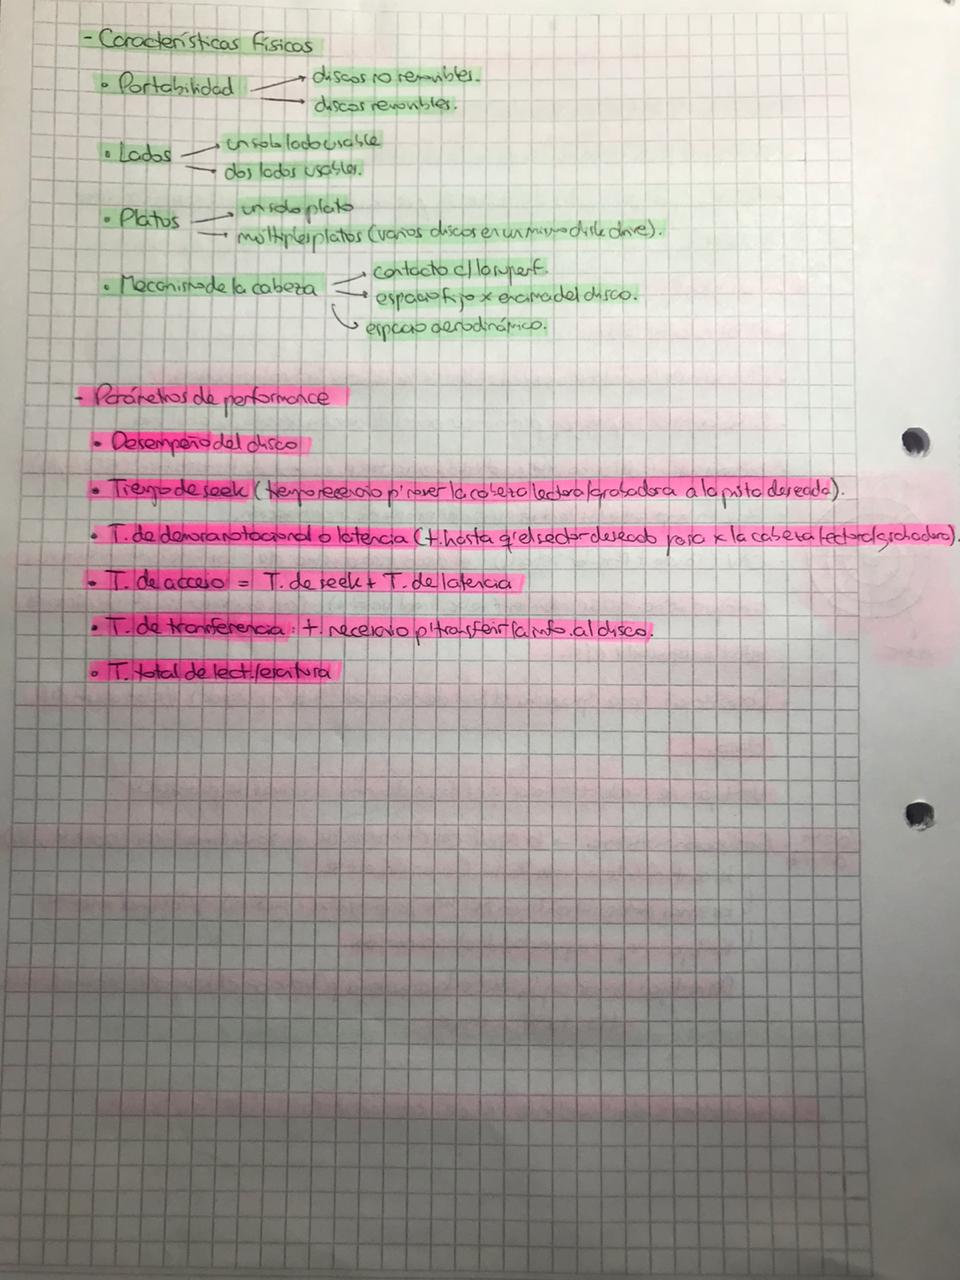 - Características físicas
• Portabilidad → discos no removibles.
→ discos removibles.
• Lados → un solo lado usable
→ dos lados usables.
• Platos → un solo plato
→ múltiples platos (varios discos en un mismo disk drive).
• Mecanismo de la cabeza → contacto c/ la superf.
→ espacio fijo x encima del disco.
→ espacio aerodinámico.
- Parámetros de performance
• Desempeño del disco
• Tiempo de seek (tiempo necesario p' mover la cabeza lectora/grabadora a la pista deseada).
• T. de demora rotacional o latencia (t. hasta q' el sector deseado pasa x la cabeza lectora/grabadora).
• T. de acceso = T. de seek + T. de latencia
• T. de transferencia: t. necesario p' transferir la info. al disco.
• T. total de lect./escritura